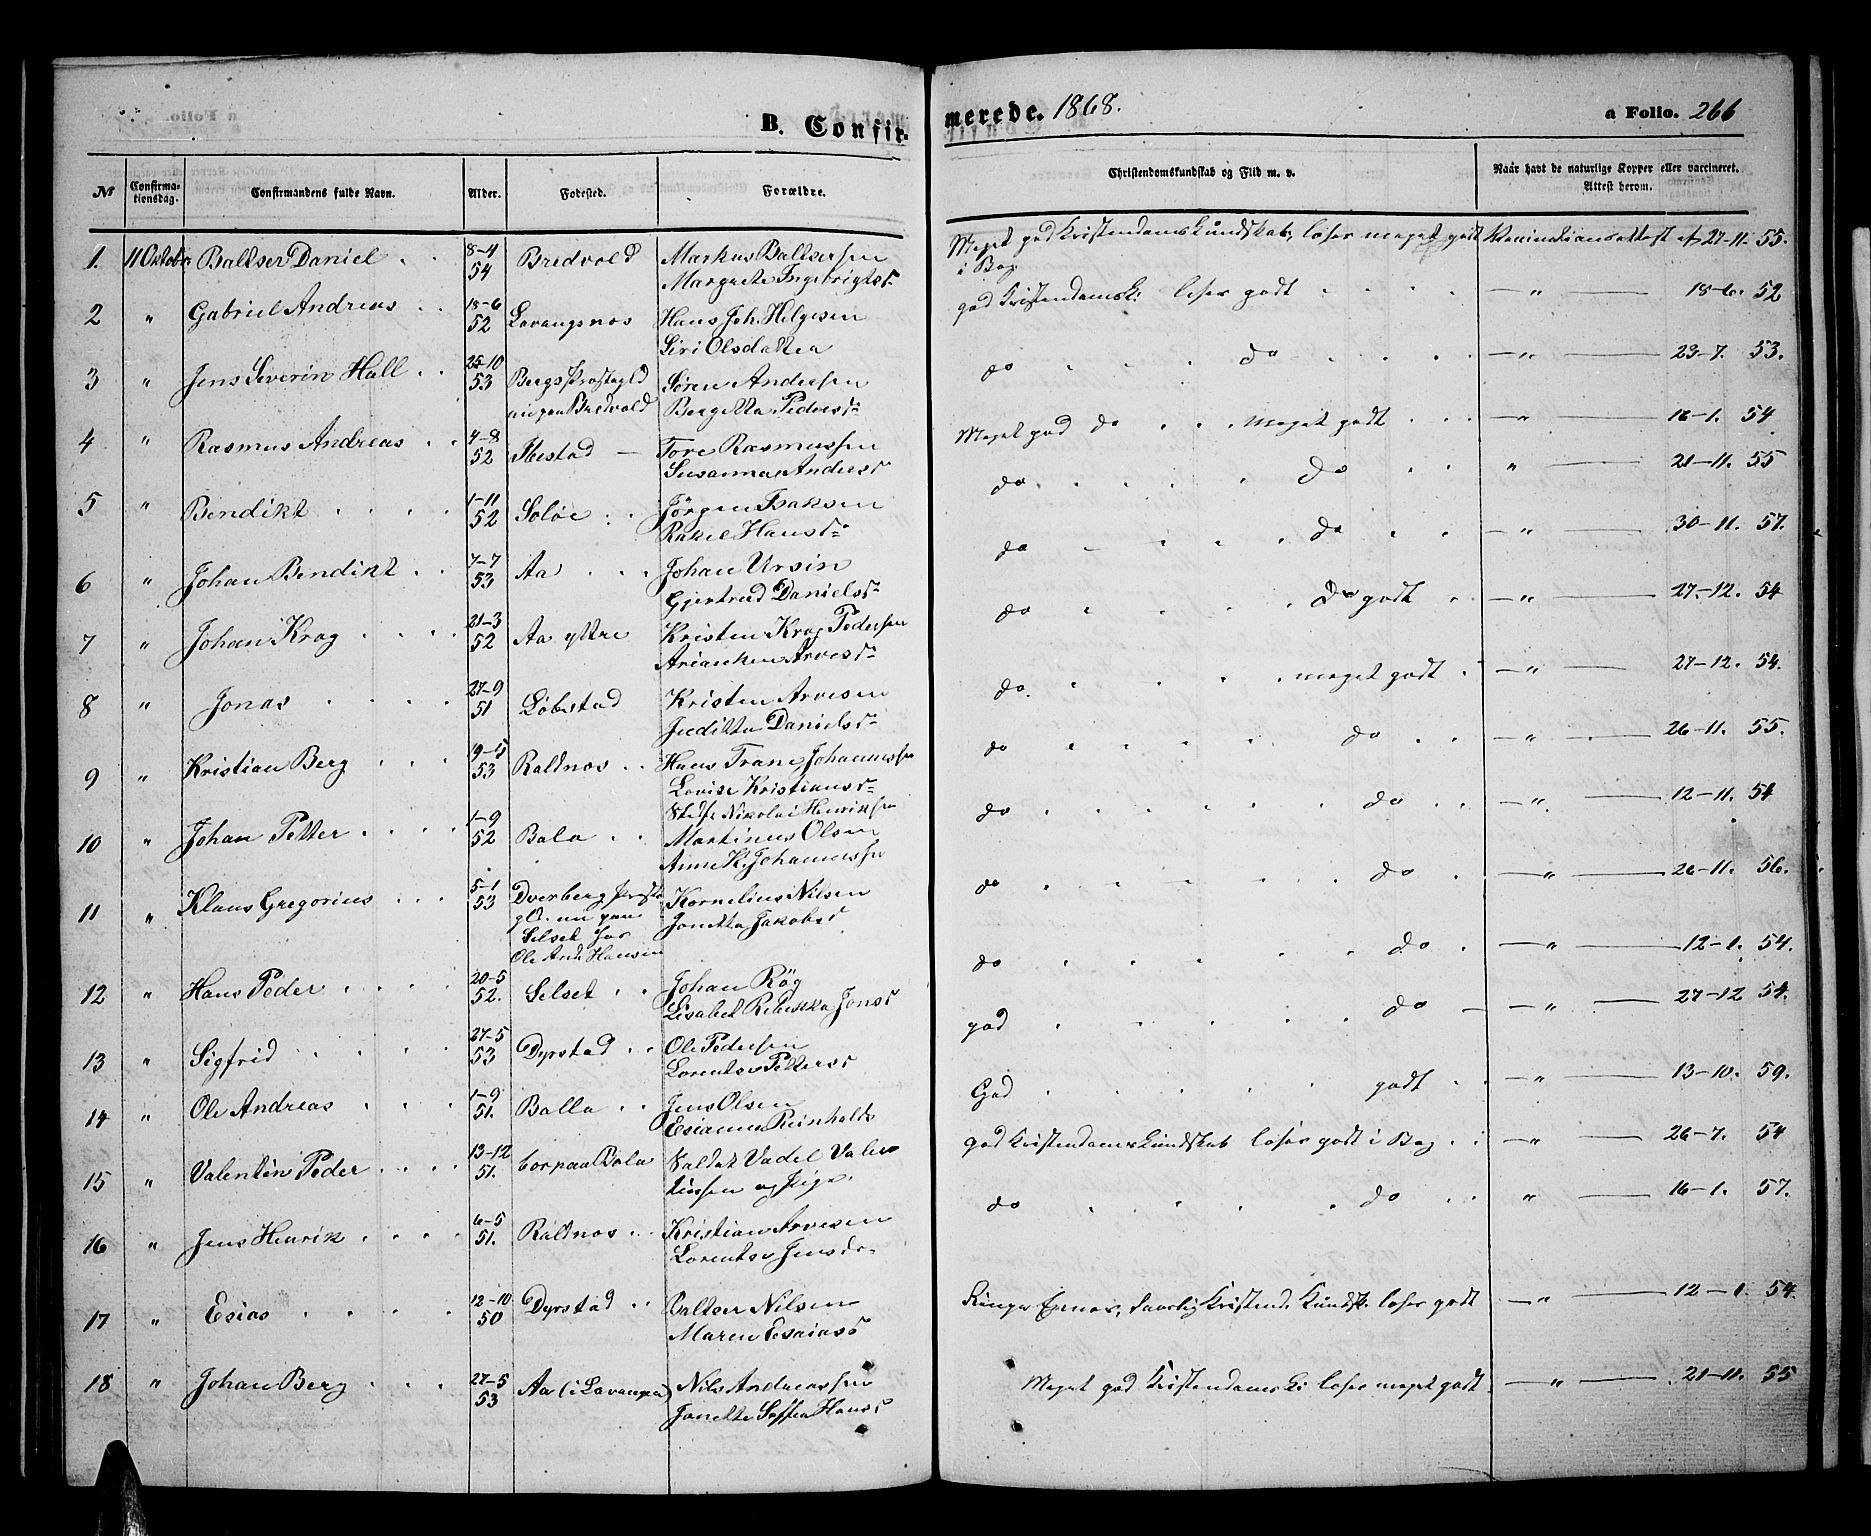 B. Confir-
merede. 1868.
a Folio. 266
№
Confirma-
tionsdag.
Confirmandens fulde Navn.
Alder.
Fødested.
Forældre.
Christendomskundskab og Flid m. v.
Naar havt de naturlige Kopper eller vaccineret.
Attest herom.
1. 11 Oktober Baltser Daniel 8-4 54 Bredvold Markus Baltsersen
Margrete Ingebrigtsd:
Meget god Kristendomskundskab, læser meget godt i Bog Vaccinationsattest af 27-11. 55.
2 " Gabriel Andreas 18-6 52 Lavangsnæs Hans Joh. Helgesen
Siri Olsdatter
god Kristendomsk: læser godt — " — 18-6. 52
3 " Jens Severin Hall 25-10 53 Bergs Præstegld
nu paa Bredvold
Søren Andersen
Bergitta Pedersd:
do do — " — 23-7. 53.
4 " Rasmus Andreas 4-8 52 Ibestad — Tore Rasmussen
Susanna Andersd
Meget god do meget godt " — 16-1. 54
5 " Bendikt 1-11 52 Soløe Jörgen Isaksen
Rakel Hansd:
do do " — 21-11. 55
6 " Johan Bendikt 7-7 53 Aa Johan Ursin
Gjertrud Danielsd:
do do " — 30-11. 57.
7 " Johan Krog 21-3 52 Aa yttre Kristen Krog Pedersen
Arianken Arvesd:
do do godt — " — 27-12. 54
8 " Jonas 27-9 51 Løbestad Kristen Arvesen
Juditta Danielsd:
do meget godt — " — 27-12. 54.
9 " Kristian Berg 9-5 53 Roldnæs Hans Trane Johannessen
Lovise Kristiansd:
do do — " — 26-11. 55.
10 " Johan Petter 1-9 52 Bala Stedf. Nikolai Henriksen
Martinus Olsen
Anne K. Johannessen
do do — " — 12-11. 54
11 " Klaus Gregorius 5-1 53 Dverberg Præste
gld. nu paa
Selset hos
Ole And. Hansen
Kornelius Nilsen
Jonetta Jakobsd
do do — " — 26-11. 56.
12 " Hans Peder 20-5 52. Selset Johan Røg
Lisabet Rebekka Jonsd
do do — " — 12-1. 54.
13 " Sigfrid 27-5 53 Dyrstad Ole Pedersen
Lorentse Pettersd
god do — " — 27-12 54.
14 " Ole Andreas 1-9 51. Balla Jens Olsen
Esianna Reinholds
God godt — " — 13-10. 59.
15 " Valentin Peder 13-12 51. bor paa Bala Soldat Vadel Valen-
tinsen og Pige
god Kristendomskundskab læser godt i Bog — " — 26-7. 54
16 " Jens Henrik 6-5 51. Roldnæs Kristian Arvesen
Lorentse Jensd:
do do " — 16-1. 57.
17 " Esias 12-10 50 Dyrstad Baltser Nilsen
Maren Esaiasd
Ringe Evner, daarlig Kristend. Kundsk. læser godt — " — 12-1. 54.
18 " Johan Berg 27-5 53 Aa (i Lavangen) Nils Andreassen
Jonette Soffia Hansd
Meget god Kristendomsk: læser meget godt — " — 21-11. 55